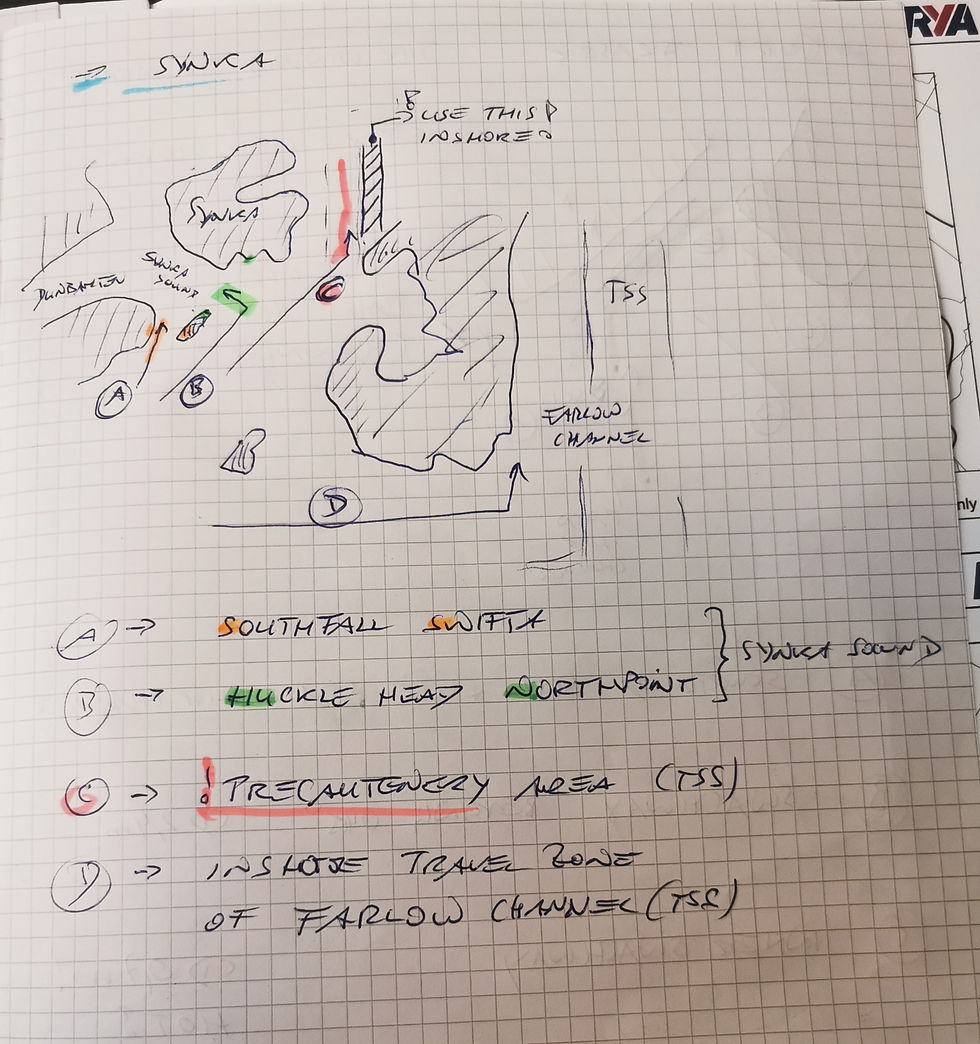 RYA
→ SYNKA
! → USE THIS
INSHORE
SYNKA
DUNBAHTEN
SYNKA
SOUND
C
TSS
A
B
FARLOW
CHANNEL
D
nly
A → SOUTHFALL SWIFTA
B → HUCKLE HEAD NORTHPOINT } SYNKA SOUND
C → ! PRECAUTENERY AREA (TSS)
D → INSHORE TRAVEL ZONE
OF FARLOW CHANNEL (TSS)